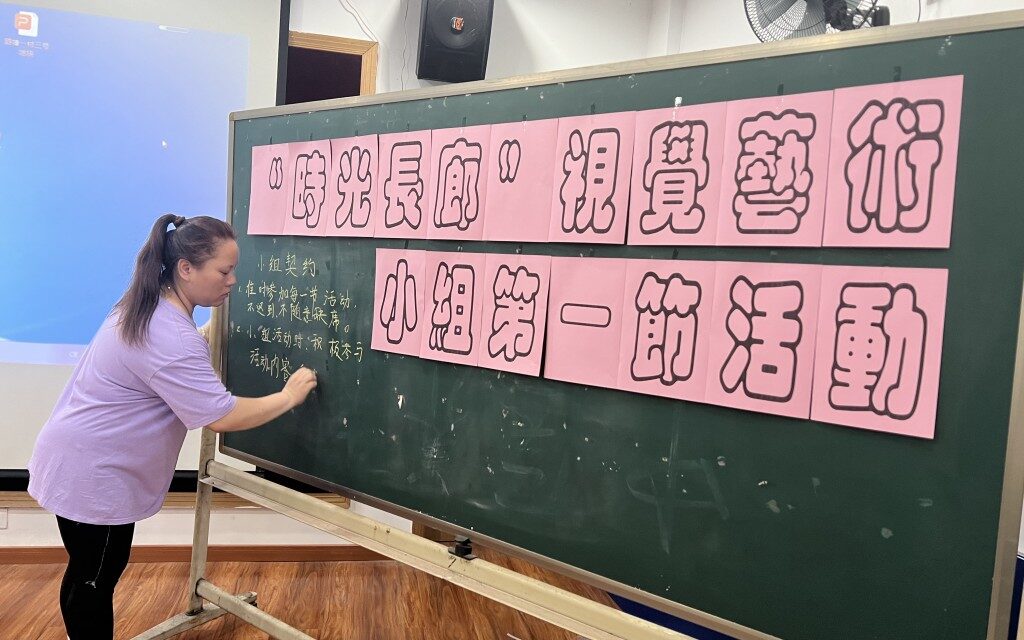 “時光長廊”視覺藝術
小組第一節活動
小组契约
1.准时参加每一节活动，
不迟到不随意缺席。
2.小组活动时，积极参与
活动内容